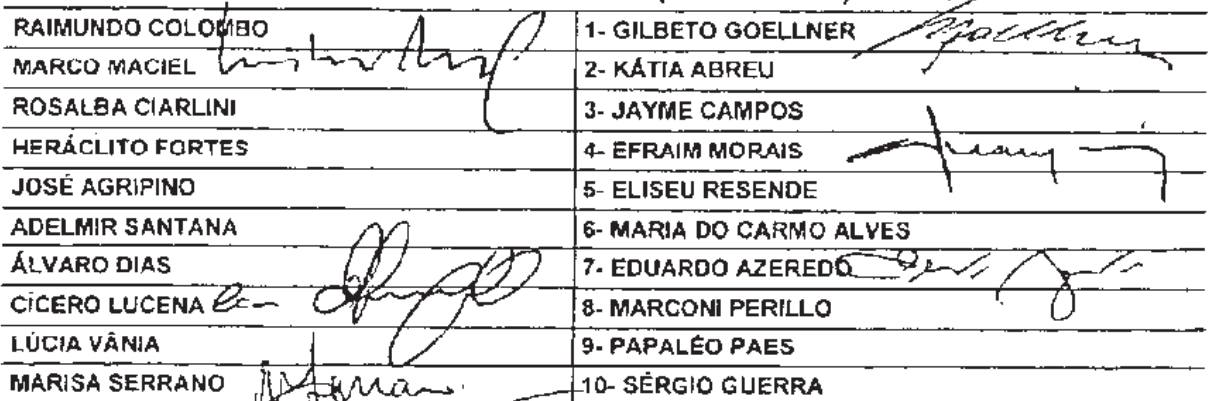 RAIMUNDO COLOMBO
1- GILBETO GOELLNER
MARCO MACIEL
2- KÁTIA ABREU
ROSALBA CIARLINI
3- JAYME CAMPOS
HERÁCLITO FORTES
4- EFRAIM MORAIS
JOSÉ AGRIPINO
5- ELISEU RESENDE
ADELMIR SANTANA
6- MARIA DO CARMO ALVES
ÁLVARO DIAS
7- EDUARDO AZEREDO
CÍCERO LUCENA
8- MARCONI PERILLO
LÚCIA VÂNIA
9- PAPALÉO PAES
MARISA SERRANO
10- SÉRGIO GUERRA